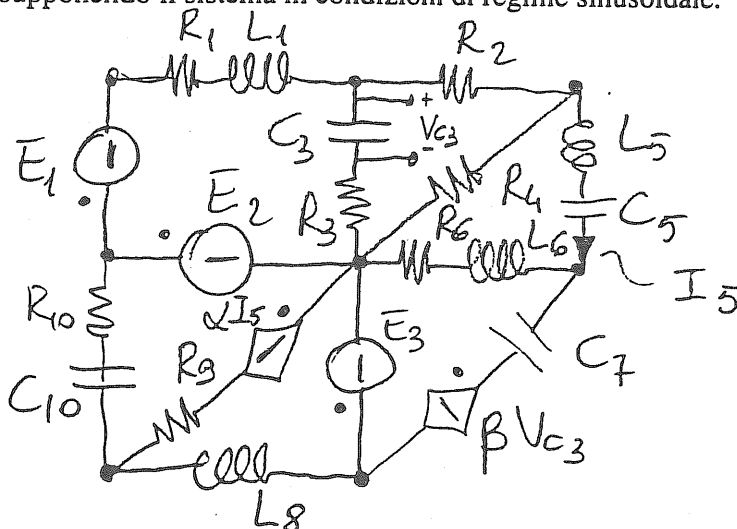 supponendo il sistema in condizioni di regime sinusoidale.
R1 L1 R2
C3 + Vc3 -
L5
E1
E2
R3 R4 C5
R6 L6
I5
R10
αI5
E3
R9
C7
C10
βVc3
L8